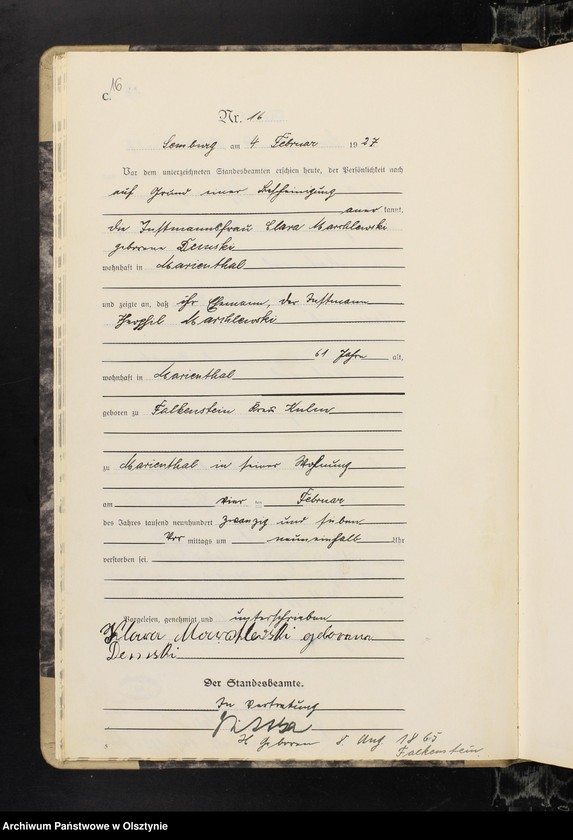 16
C.
Nr. 16
Semburg am 4 Februar 1927
Vor dem unterzeichneten Standesbeamten erschien heute, der Persönlichkeit nach
auf Grund einer Bescheinigung
aner kannt,
die Instmannsfrau Clara Marchlewski
geborene Demski
wohnhaft in Marienthal
und zeigte an, daß ihr Ehemann, der Instmann
Marchlewski
61 Jahre alt,
wohnhaft in Marienthal
geboren zu Falkenstein Kreis Kulm
zu Marienthal in seiner Wohnung
am vier ten Februar
des Jahres tausend neunhundert zwanzig und sieben
Vor mittags um neuneinhalb Uhr
verstorben sei.
Vorgelesen, genehmigt und unterschrieben
Klara geborene
Demski
Der Standesbeamte.
In Vertretung
Geboren 8. Aug. 1865
Falkenstein
Archiwum Państwowe w Olsztynie